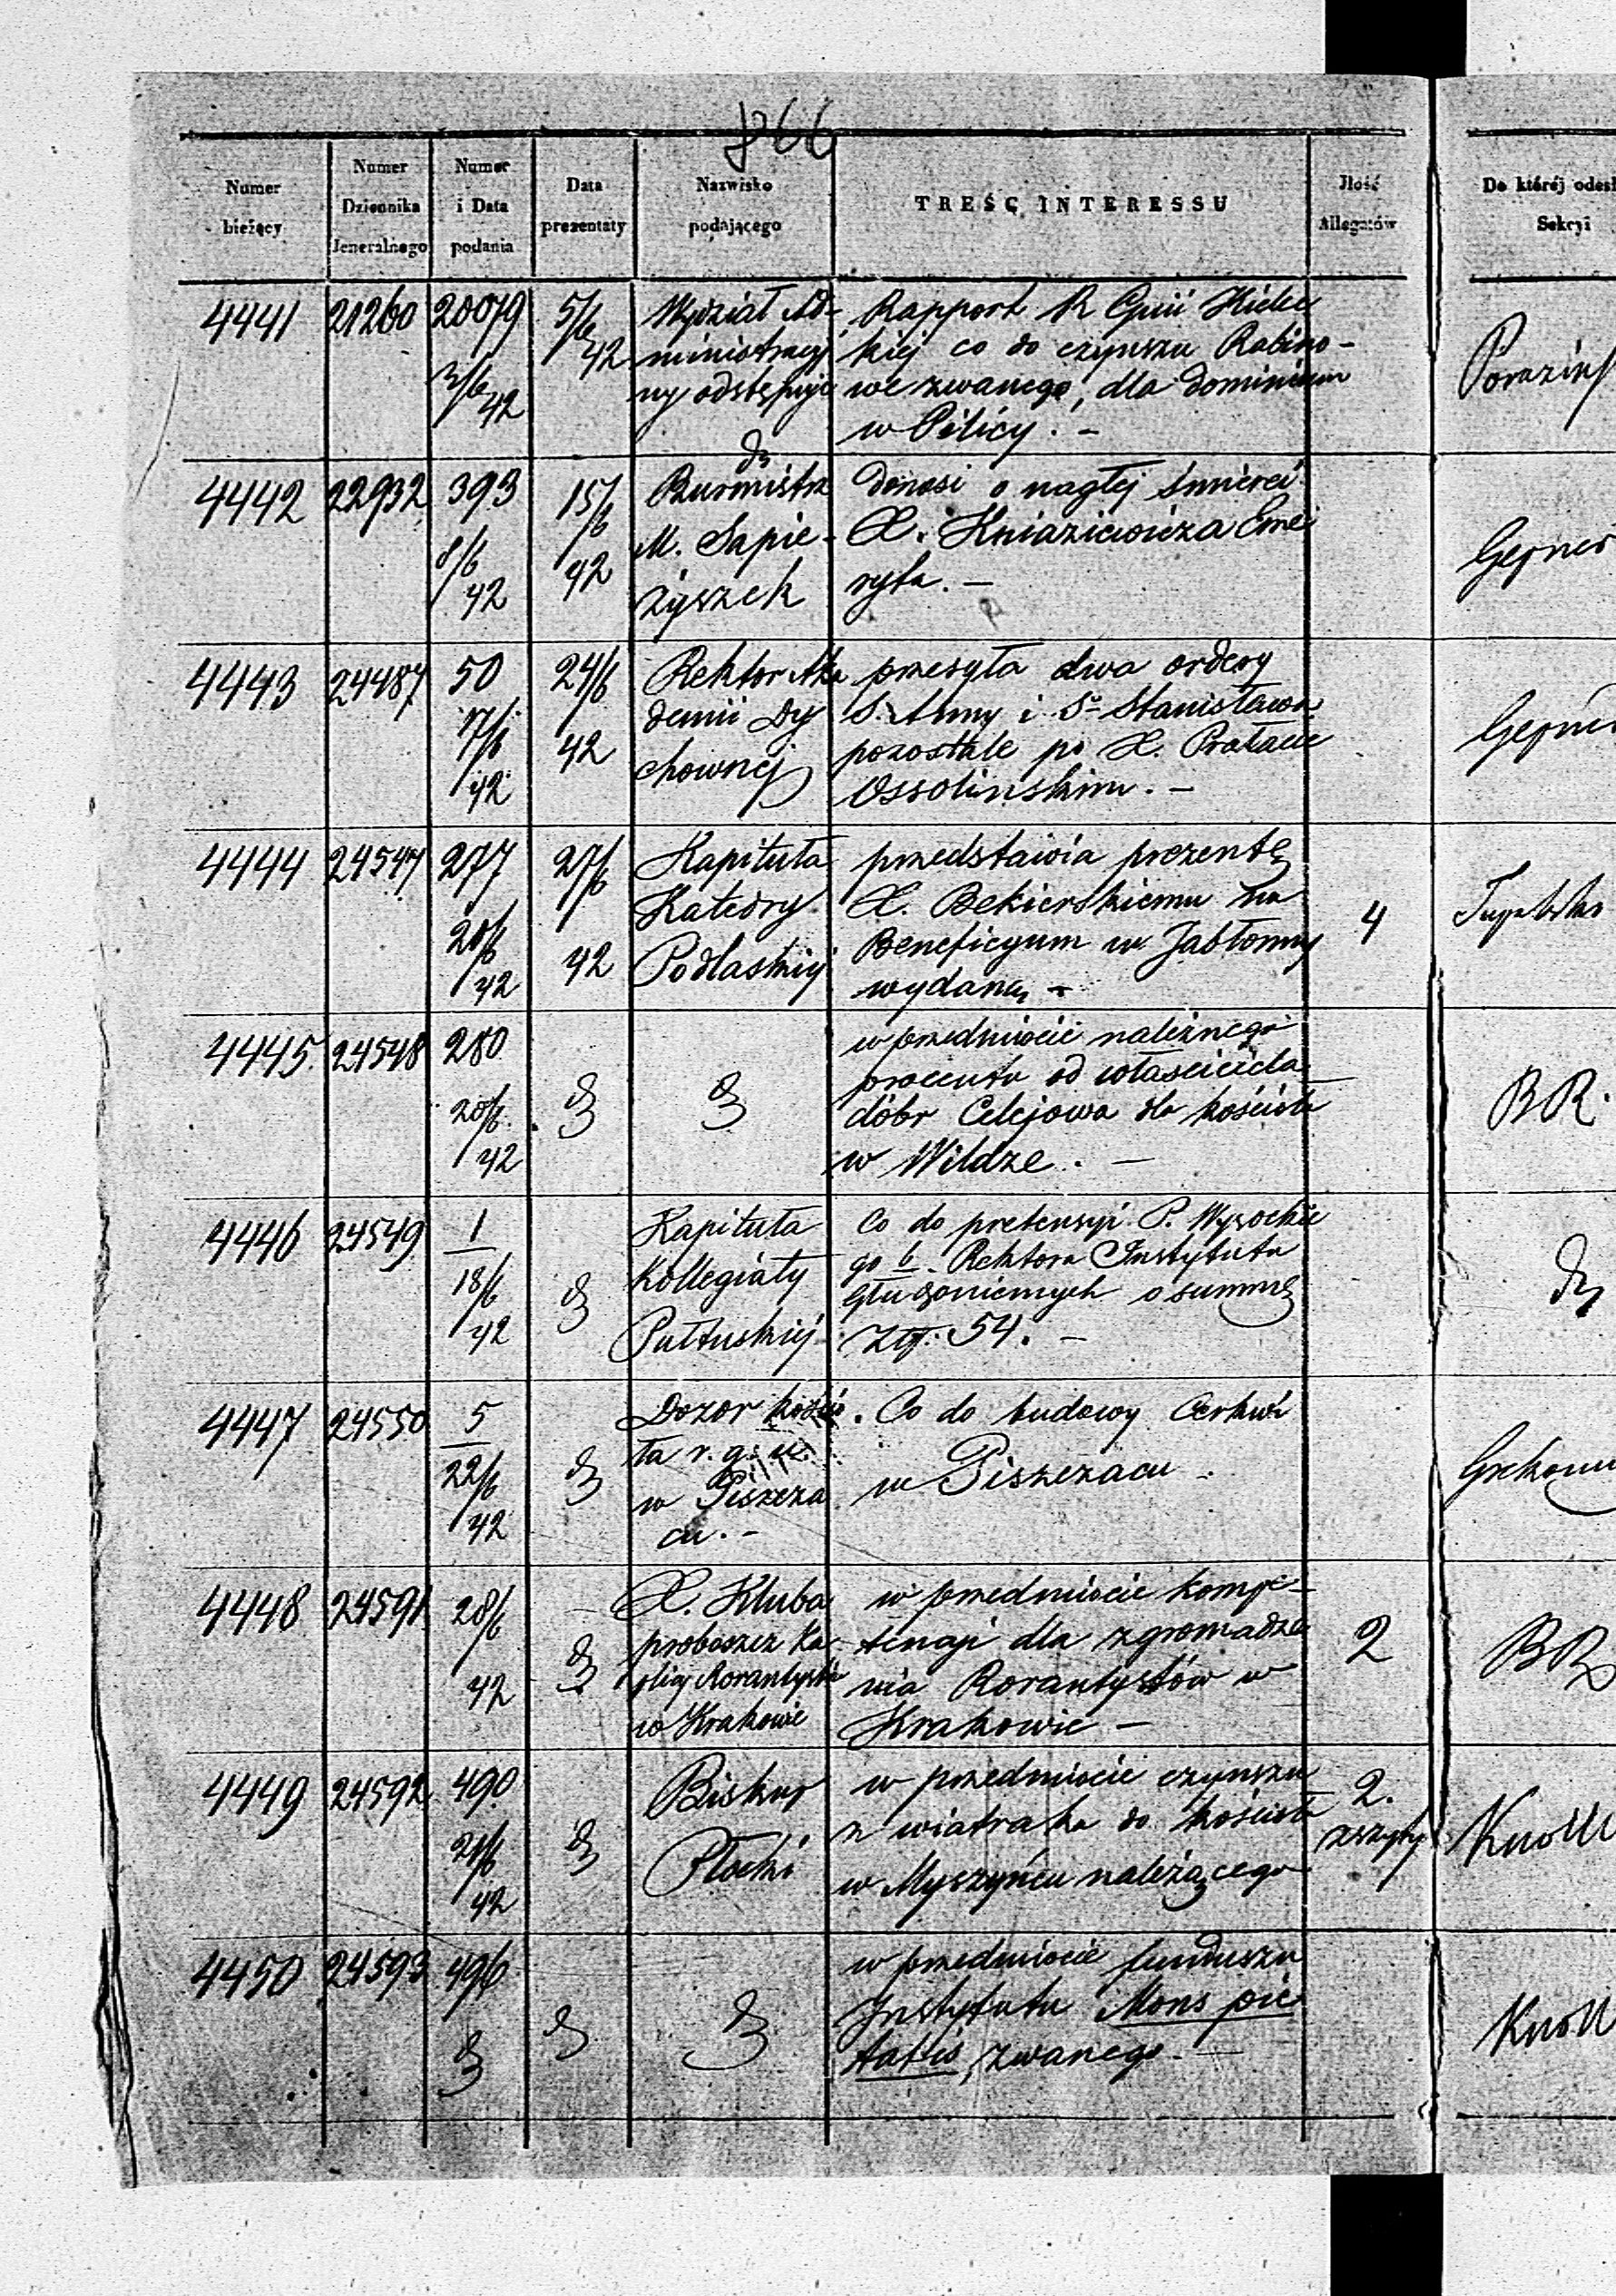 366
Numer bieżący
Numer Dziennika Jeneralnego
Numer i Data podania
Data prezentaty
Nazwisko podającego
TREŚĆ INTERESSU
Jlość Allegatów
Do któréj odesł
Sekcyi
4441 21260 20079 5/6 Wydział Ad- Rapport R Gpni Kielec
42 ministracyj kiej co do czynszu Rabino-
2/6 42 ny odstępuje we zwanego, dla Dominium
w Pilicy. -
4442 22932 393 15/6 Burmistrz donosi o nagłej śmierci
8/6 42 M. Sapie- X. Kniaziewicza Eme
42 żyszek ryta. -
Gepner
4443 24487 50 24/6 Rektor Aka przesyła dwa ordery
17/6 42 demii Du S. Anny i Sgo Stanisława
42 chownej pozostałe po X. Prałacie
Ossolinskim. -
Gepner
4444 24547 277 27/6 Kapituła przedstawia prezentę
Katedry X. Bekierskiemu na 4
20/6 42 Podlaskiej Beneficyum w Jabłonny
42 wydaną -
4445. 24548 280 w przedmiocie należnego
procentu od właściciela
20/6 dóbr Celejowa dla kościoła BR.
42 w Wildze. -
4446 24549 1 Kapituła Co do pretensyi P. Wysockie
18/6 Kollegiaty go b. Rektora Instytutu
42 Pułtuskiej Głuchoniemych o summę
Złp. 54. -
4447 24550 5 Dozor kościo Co do budowy Cerkwi
22/6 ła r. g. u. w Piszczacu
42 w Piszcza
cu. -
4448 24591 28/6 X. Kluba w przedmiocie kompe-
proboszcz Ka tencyi dla zgromadze 2 BR
42 plicy Rorantystów nia Rorantystów w
w Krakowie Krakowie -
4449 24592 490 Biskup w przedmiocie czynszu 2.
21/6 Płocki z wiatraka do kościoła zszyty
42 w Myszyńcu należącego
Knoll
4450 24593 496 w przedmiocie funduszu
Instytutu Mons pie
tattis zwanego. -
Knoll